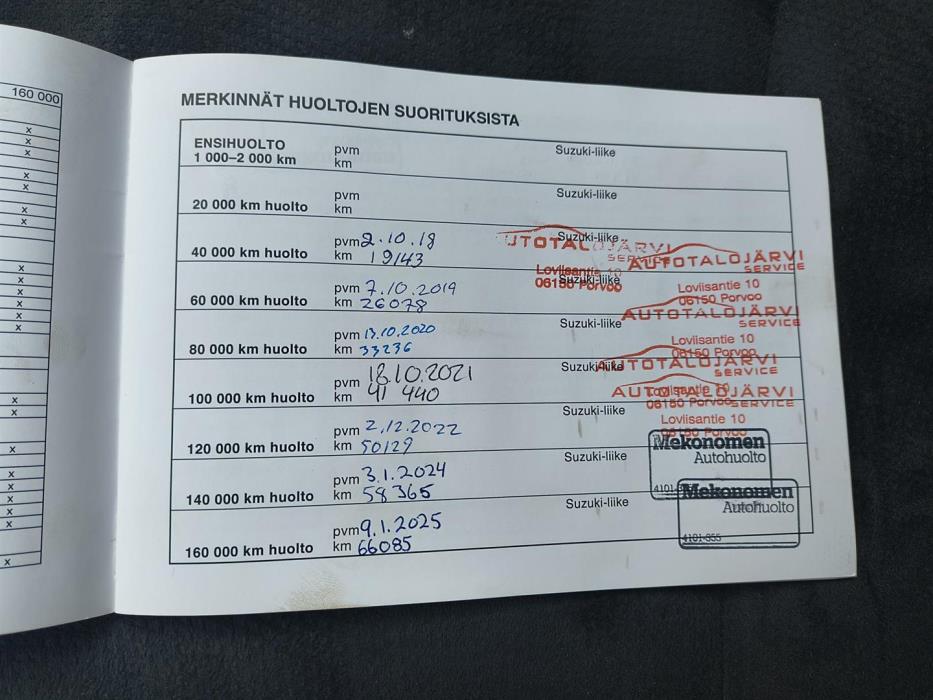 160 000
x
x
x
x
x
x
x
x
x
x
x
x
x
x
x
x
x
x
x
x
x
x
MERKINNÄT HUOLTOJEN SUORITUKSISTA
ENSIHUOLTO
1 000–2 000 km
pvm
km
Suzuki-liike
20 000 km huolto
pvm
km
Suzuki-liike
40 000 km huolto
pvm 2.10.18
km 19143
Suzuki-liike
UTOTALOJÄRVI
SERVICE
Loviisantie 10
06150 Porvoo
60 000 km huolto
pvm 7.10.2019
km 26078
Suzuki-liike
AUTOTALOJÄRVI
SERVICE
Loviisantie 10
06150 Porvoo
80 000 km huolto
pvm 13.10.2020
km 33236
Suzuki-liike
AUTOTALOJÄRVI
SERVICE
Loviisantie 10
06150 Porvoo
100 000 km huolto
pvm 18.10.2021
km 41 440
Suzuki-liike
AUTOTALOJÄRVI
SERVICE
Loviisantie 10
06150 Porvoo
120 000 km huolto
pvm 2.12.2022
km 50129
Suzuki-liike
AUTOTALOJÄRVI
SERVICE
Loviisantie 10
06150 Porvoo
140 000 km huolto
pvm 3.1.2024
km 58365
Suzuki-liike
Mekonomen
Autohuolto
160 000 km huolto
pvm 9.1.2025
km 66085
Suzuki-liike
Mekonomen
Autohuolto
4101-855